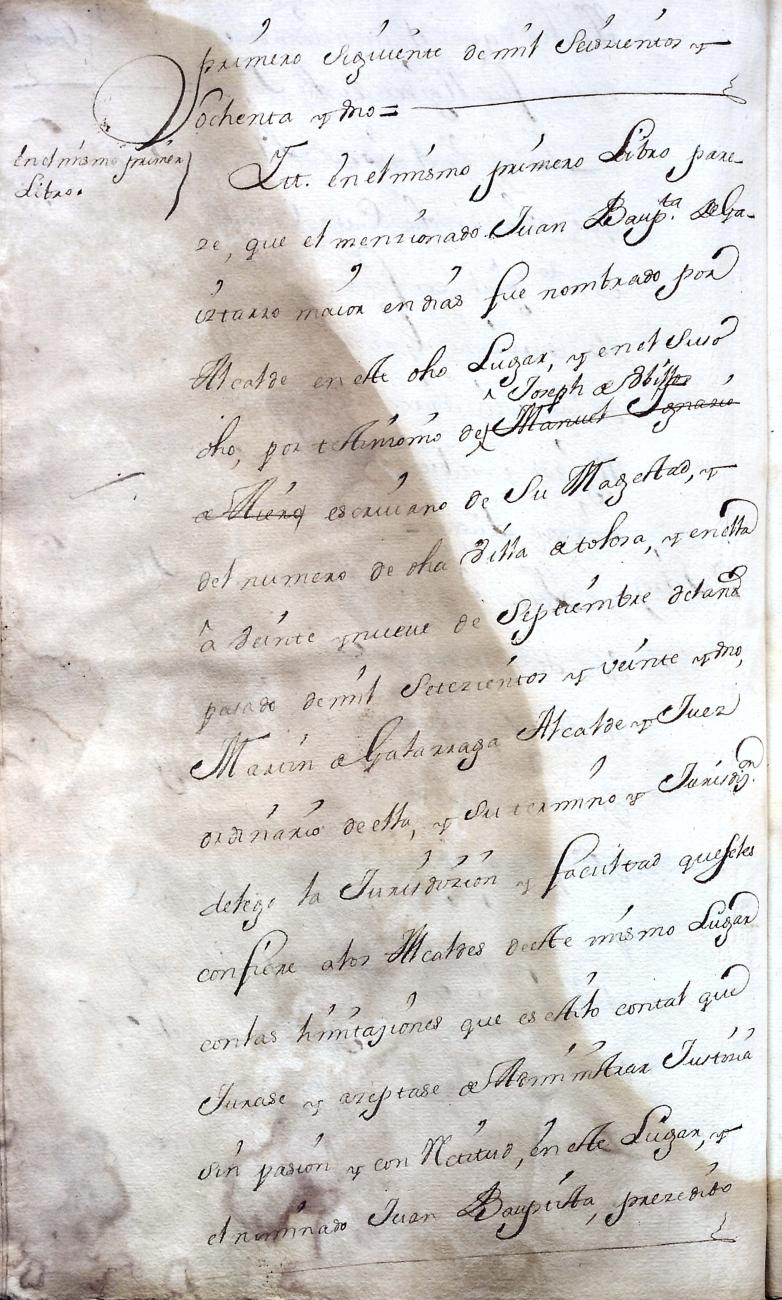 primero siguiente de mil Seiszientos y
ochenta y vno =
En el mismo primer
Libro.
Itt. en el mismo primero Libro pare-
ze, que el menzionado Juan Baup.ta de Ga-
iztarro maior en dias fue nombrado por
Alcalde en este dho Lugar, y en el Suso
^ Joseph de
dho, por testimonio de Manuel Ignazio
de escriuano de Su Magestad, y
del numero de dha Villa de tolosa, y en ella
â Veinte y nueue de Septiembre del año
pasado de mil Setezientos y veinte y vno,
Martin de Galarraga Alcalde y Juez
ordinario de ella, y su termino y Jurisdi.on
delego la Jurisdizion y facultad que seles
confiere a los Alcaldes de este mismo Lugar
con las limitaziones que es estilo con tal que
Jurase y azeptase de Administrar Justizia
sin pasion y con Rectitud, en este Lugar, y
el nominado Juan Bauptista, prezedido